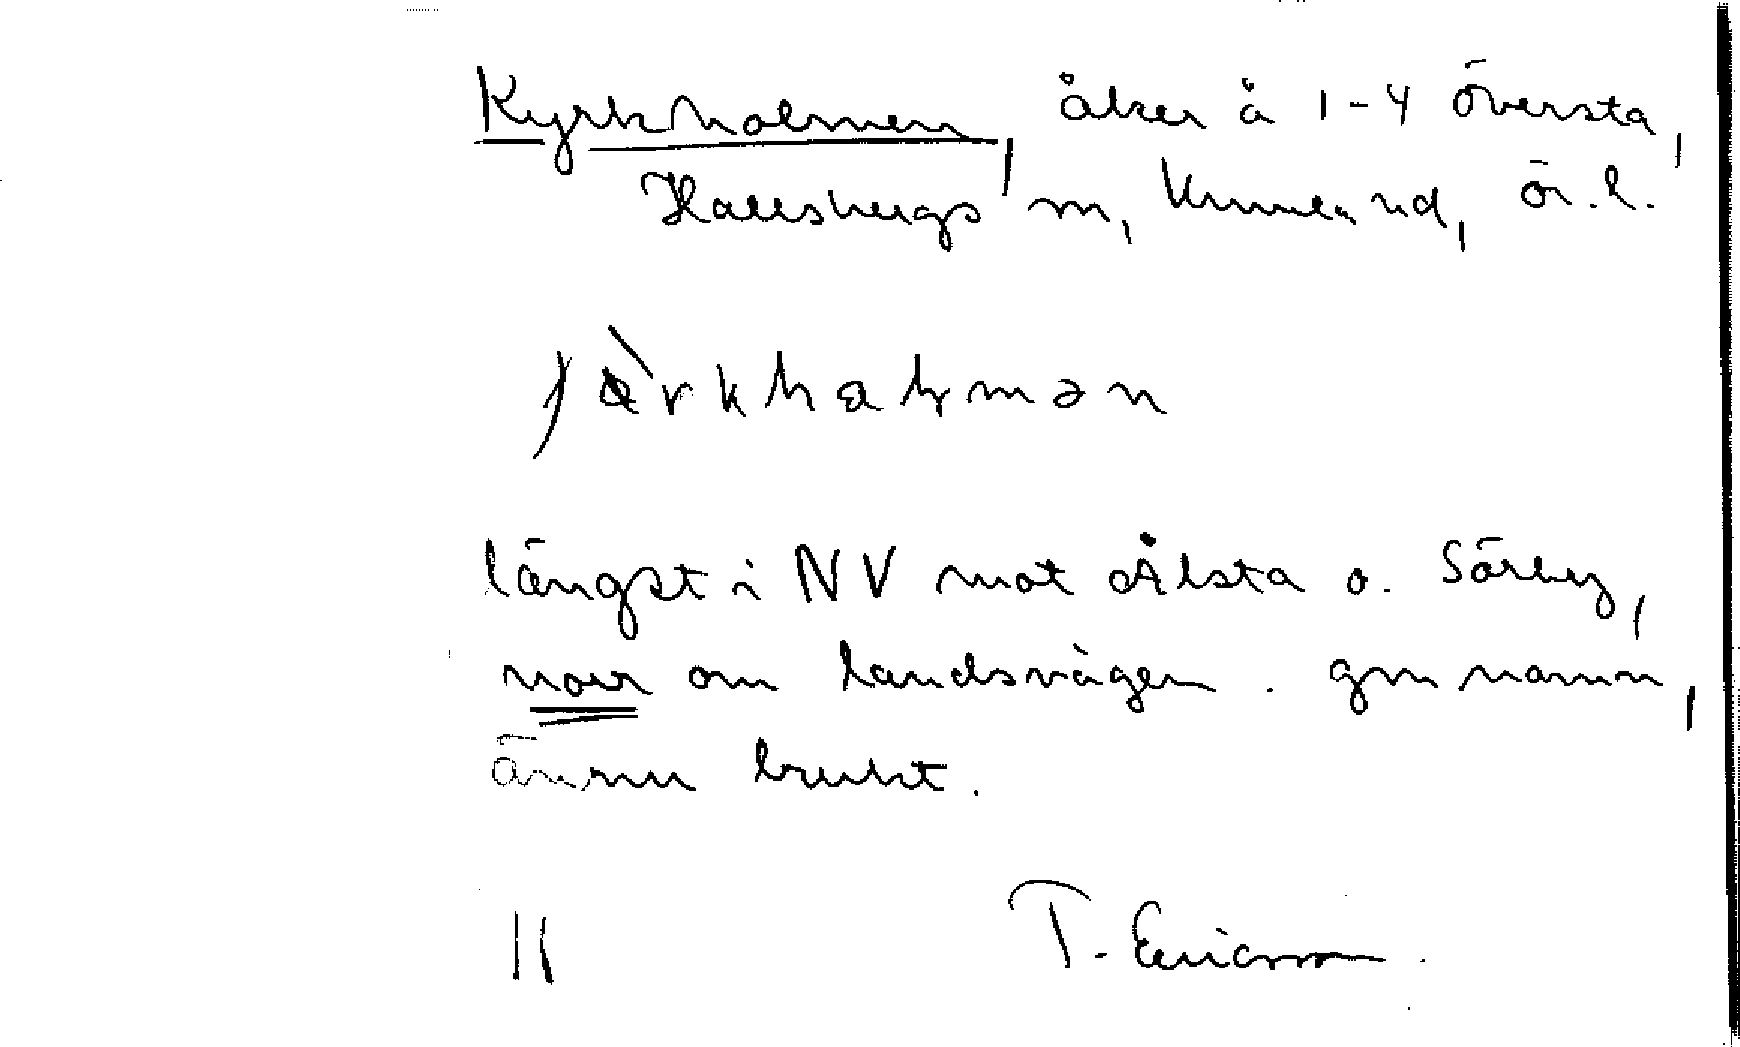 Kyrkholmen, åker å 1-4 Översta,
Hallsbergs sn, Kumla hd, ör. l.
längst i NV mot Ålsta o. Sörby,
norr om landsvägen. gm namn,
ännu brukt.
T. Ericsson.